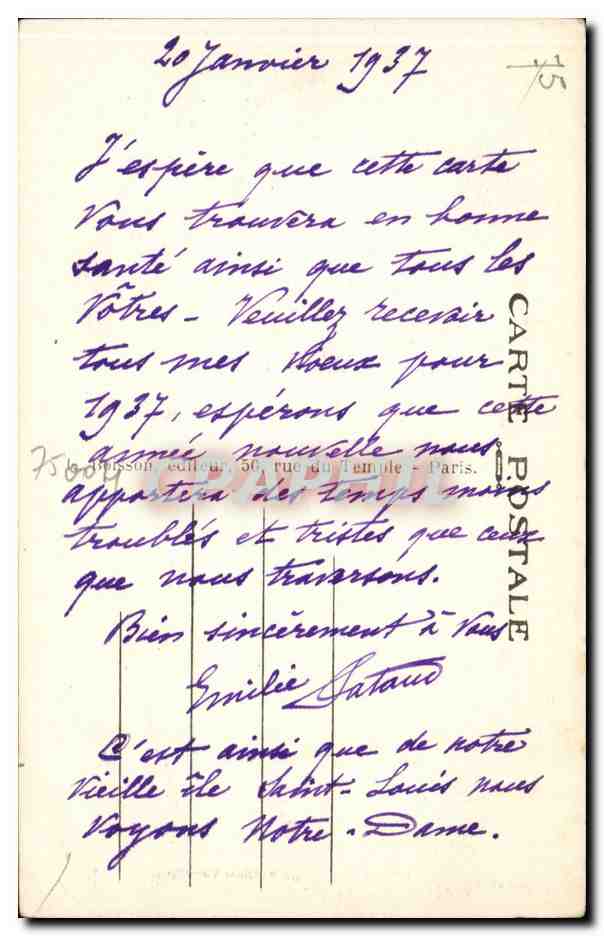 20 Janvier 1937
75
J'espère que cette carte
Vous trouvera en bonne
santé ainsi que tous les
Vôtres - Veuillez recevoir
tous mes Voeux pour
1937, espérons que cette
année nouvelle nous
apportera des temps moins
troublés et tristes que ceux
que nous traversons.
Bien sincèrement à Vous
Emilie
C'est ainsi que de notre
Vieille île Saint-Louis nous
Voyons Notre-Dame.
CARTE POSTALE
L. Boisson, éditeur, 50, rue du Temple - Paris.
75004
CPAPHIL